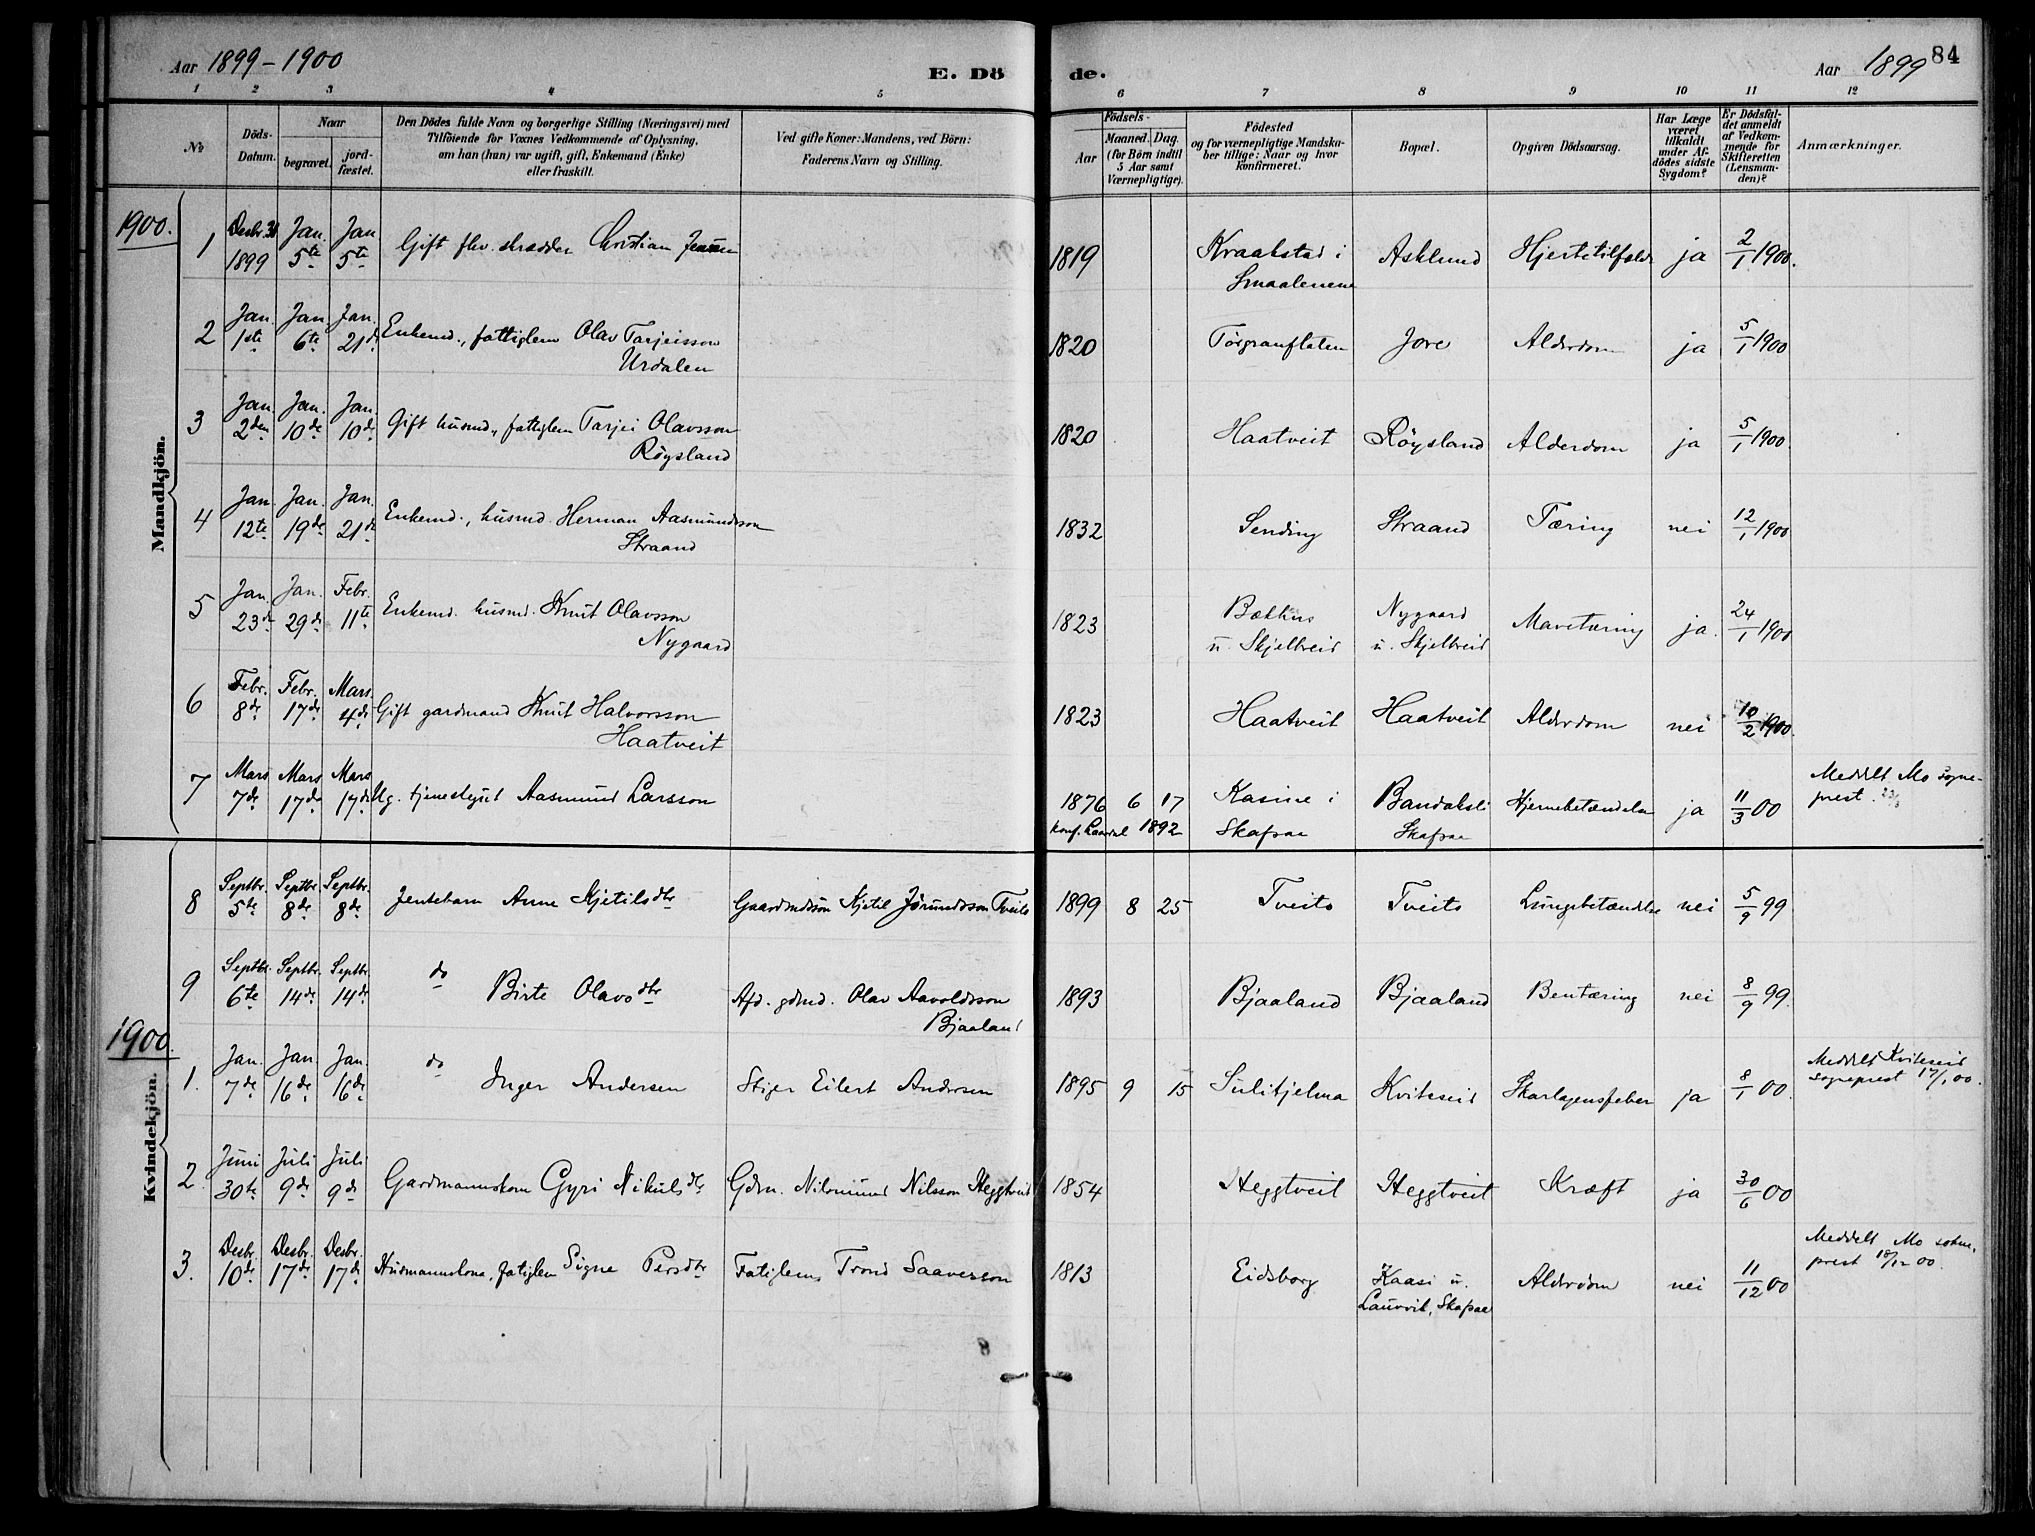 Aar 1899-1900
E. Dö de.
Aar 1899
84
1 2 3 4 5 6 7 8 9 10 11 12
No
Döds-Datum.
Naar
begravet.
jord-fæstet.
Den Dödes fulde Navn og borgerlige Stilling (Næringsvei) med
Tilföiende for Voxnes Vedkommende af Oplysning,
om han (hun) var ugift, gift, Enkemand (Enke)
eller fraskilt.
Ved gifte Koner: Mandens, ved Börn:
Faderens Navn og Stilling.
Födsels-
Aar
Maaned. Dag.
(for Börn indtil
5 Aar samt
Værnepligtige).
Födested
og for værnepligtige Mandska-
ber tillige: Naar og hvor
konfirmeret.
Bopæl.
Opgiven Dödsaarsag.
Har Læge
været
tilkaldt
under Af-
dödes sidste
Sygdom?
Er Dödsfal-
det anmeldt
af Vedkom-
mende for
Skifteretten
(Lensman-
den)?
Anmærkninger.
1900.
Mandkjön.
1 Desbr. 31 1899 Jan. 5te Jan 5te Gift fhv. skrædder Christian Jensen 1819 Kraakstad i Smaalenene Asklund Hjertetilfælde ja 2/1 1900.
2 Jan. 1ste Jan 6te Jan. 21de Enkemd., fattiglem Olav Tarjeisson Urdalen 1820 Jore Alderdom ja 5/1 1900
3 Jan. 2den Jan. 10de Jan. 10de Gift husmd., fattiglem Tarjei Olavsson Røysland 1820 Haatveit Røysland Alderdom ja 5/1 1900
4 Jan. 12te Jan. 19de Jan. 21de Enkemd., husmd. Herman Aasmundsson Straand 1832 Sending Straand Tæring nei 12/1 1900
5 Jan. 23de Jan. 29de Febr. 11te Enkemd. husmd. Knut Olavsson Nygaard 1823 Bækhus u. Skjelbreid Nygaard u. Skjelbreid Mavetæring ja. 24/1 1900
6 Febr. 8de Febr. 17de Mars. 4de Gift gardmand Knut Halvorsson Haatveit 1823 Haatveit Haatveit Alderdom nei 10/2 1900.
7 Mars 7de Mars 17de Mars 17de Ug. tjenestegut Aasmund Larsson 1876 6 17 konf. Laardal 1892 Kasine i Skafsaa Bandaksli Skafsaa Hjernebetændelse ja 11/3 00 Meddelt Mo sogne-prest.
Kvindekjön.
8 Septbr. 5te Septbr. 8de Septbr. 8de Jentebarn Anne Kjetilsdtr Gaardmdssøn Kjetil Jørundsson Tveito 1899 8 25 Tveito Tveito Lungebetændelse nei 5/9 99
9 Septbr. 6te Septbr. 14de Septbr. 14de do Birte Olavsdtr Afd. gdmd. Olav Aavoldsson Bjaaland 1893 Bjaaland Bjaaland Bentæring nei 8/9 99.
1900.
1. Jan. 7de Jan 16de Jan. 16de do Inger Andersen Stiger Eilert Andersen 1895 9 15 Sulitjelma Kviteseid Skarlagensfeber ja 8/1 00. Meddelt Kviteseid sogneprest 17/1 00.
2. Juni 30te Juli 9de Juli 9de Gardmannskone Gyri Nikulsdtr Gdm. Nilsmund Nilsson Heggtveit 1854 Heggtveit Heggtveit Kræft ja 30/6 00
3. Desbr. 10de Desbr. 17de Desbr. 17de Husmannskona, fatiglem Signe Persdtr Fatiglem Trond Saaverson 1813 Eidsborg Kaasi u. Lauvvik, Skafsaa Alderdom nei 11/12 00 Meddelt Mo sokne-prest 18/12 00.